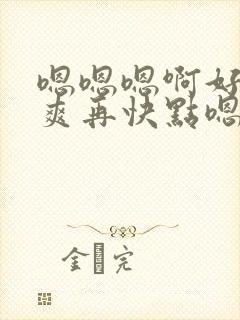 嗯嗯嗯啊好
爽再快點嗯
金 完